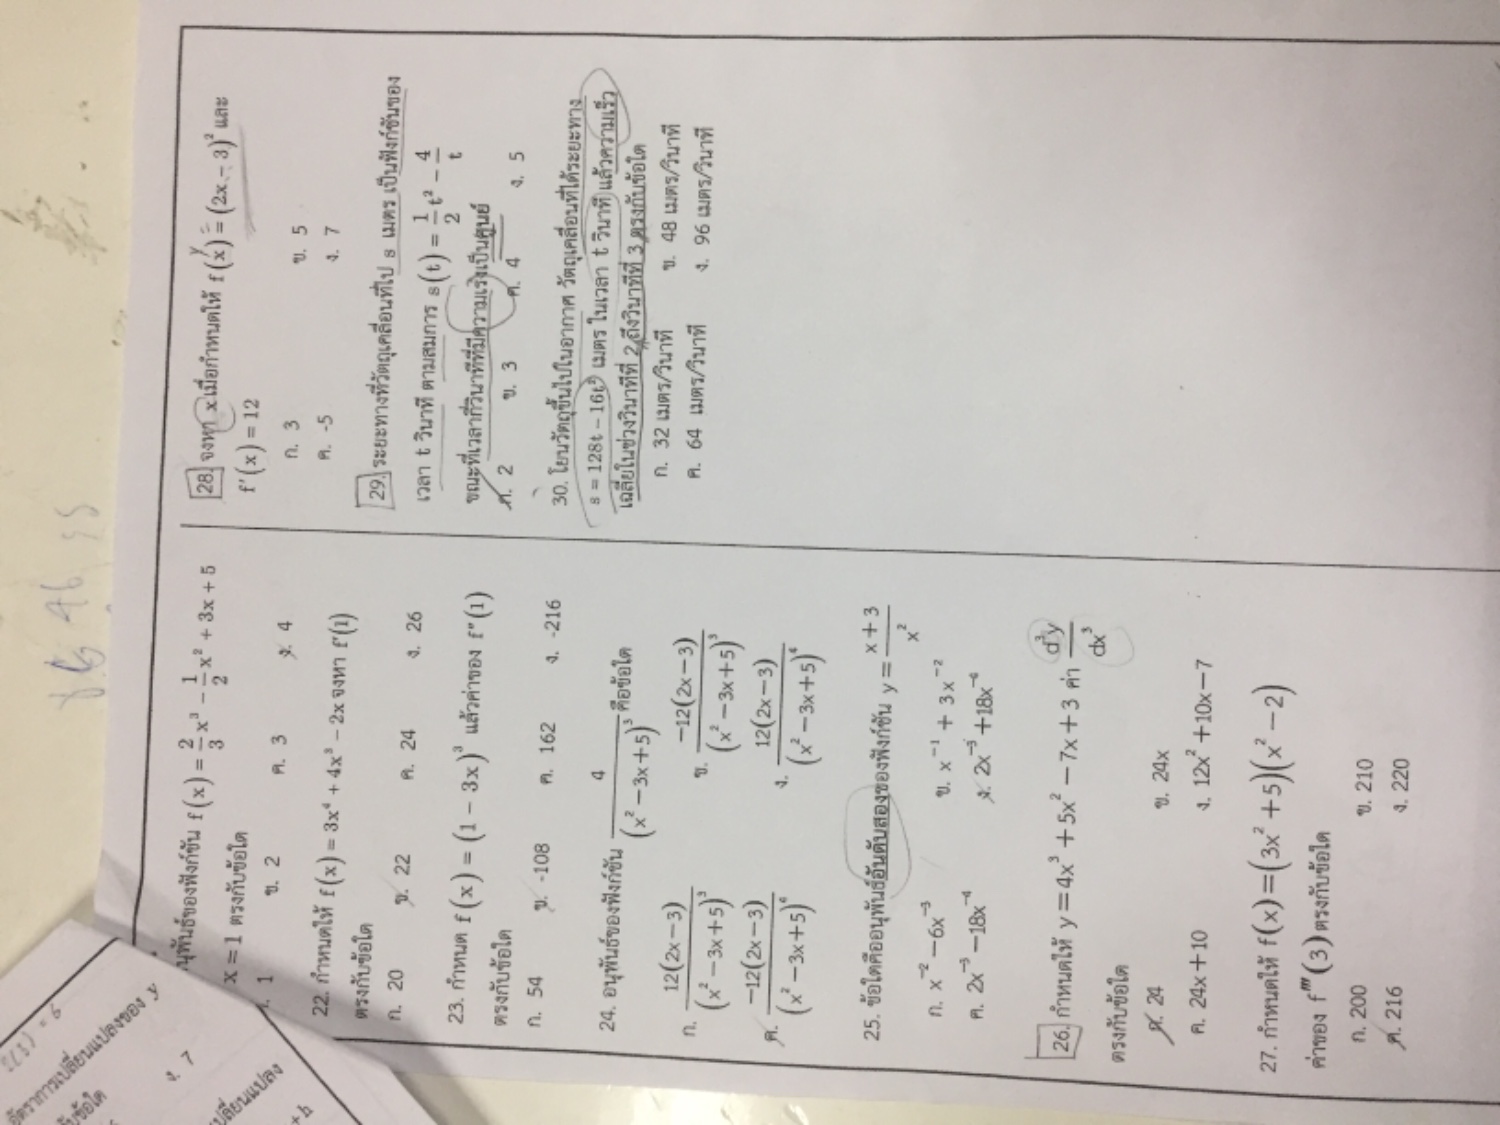 นุพันธ์ของฟังก์ชัน f(x) = 2/3 x³ − 1/2 x² + 3x + 5
x = 1 ตรงกับข้อใด
1 ข. 2 ค. 3 ง. 4
22. กำหนดให้ f(x) = 3x⁴ + 4x³ − 2x จงหา f'(1)
ตรงกับข้อใด
ก. 20 ข. 22 ค. 24 ง. 26
23. กำหนด f(x) = (1 − 3x)³ แล้วค่าของ f"(1)
ตรงกับข้อใด
ก. 54 ข. -108 ค. 162 ง. -216
24. อนุพันธ์ของฟังก์ชัน 4/(x² − 3x + 5)³ คือข้อใด
ก. 12(2x − 3)/(x² − 3x + 5)³ ข. −12(2x − 3)/(x² − 3x + 5)³
ค. −12(2x − 3)/(x² − 3x + 5)⁴ ง. 12(2x − 3)/(x² − 3x + 5)⁴
25. ข้อใดคืออนุพันธ์อันดับสองของฟังก์ชัน y = (x + 3)/x²
ก. x⁻² − 6x⁻³ ข. x⁻¹ + 3x⁻²
ค. 2x⁻³ − 18x⁻⁴ ง. 2x⁻³ + 18x⁻⁴
26. กำหนดให้ y = 4x³ + 5x² − 7x + 3 ค่า d³y/dx³
ตรงกับข้อใด
ก. 24 ข. 24x
ค. 24x + 10 ง. 12x² + 10x − 7
27. กำหนดให้ f(x) = (3x² + 5)(x² − 2)
ค่าของ f'''(3) ตรงกับข้อใด
ก. 200 ข. 210
ค. 216 ง. 220
28. จงหา x เมื่อกำหนดให้ f(x) = (2x − 3)² และ
f'(x) = 12
ก. 3 ข. 5
ค. -5 ง. 7
29. ระยะทางที่วัตถุเคลื่อนที่ไป s เมตร เป็นฟังก์ชันของ
เวลา t วินาที ตามสมการ s(t) = 1/2 t² − 4/t
ขณะที่เวลากี่วินาทีที่มีความเร่งเป็นศูนย์
ก. 2 ข. 3 ค. 4 ง. 5
30. โยนวัตถุขึ้นไปในอากาศ วัตถุเคลื่อนที่ได้ระยะทาง
s = 128t − 16t² เมตร ในเวลา t วินาที แล้วความเร็ว
เฉลี่ยในช่วงวินาทีที่ 2 ถึงวินาทีที่ 3 ตรงกับข้อใด
ก. 32 เมตร/วินาที ข. 48 เมตร/วินาที
ค. 64 เมตร/วินาที ง. 96 เมตร/วินาที
อัตราการเปลี่ยนแปลงของ y
ง. 7